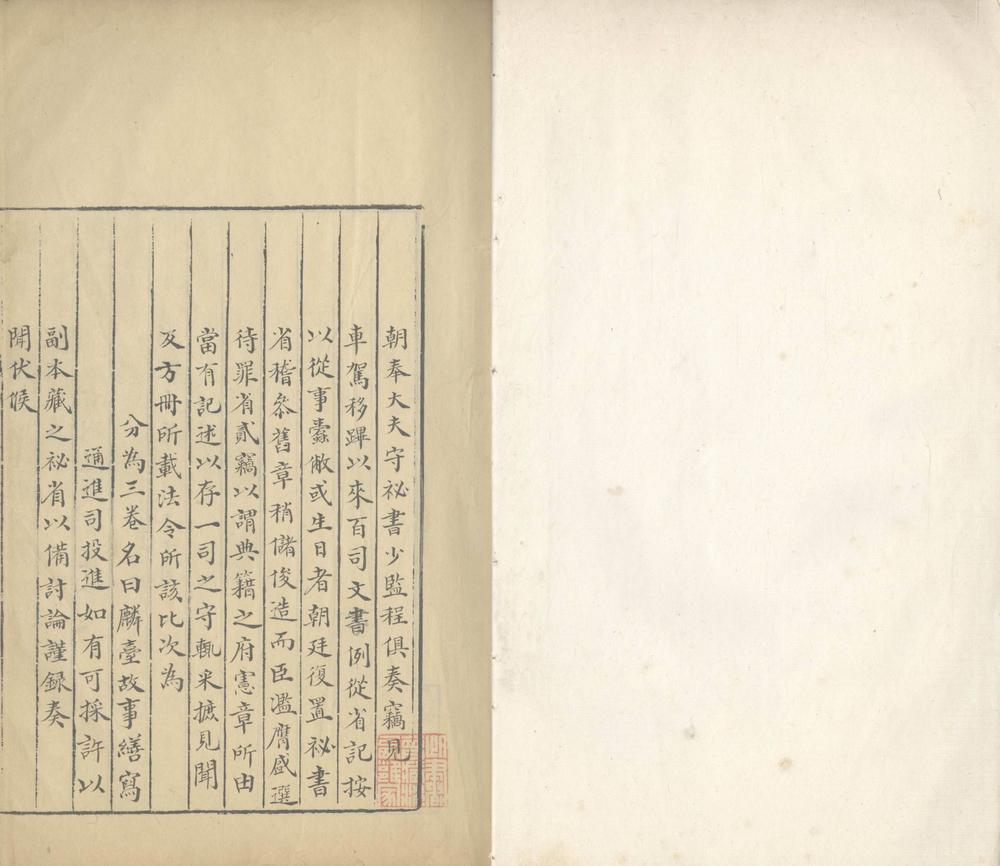 朝奉大夫守祕書少監程俱奏竊見
車駕移蹕以來百司文書例從省記按
以從事囊敝或生日者朝廷復置祕書
省稽參舊章稍儲俊造而臣濫膺盛選
待罪省貳竊以謂典籍之府憲章所由
當有記述以存一司之守輒采摭見聞
及方冊所載法令所該比次為
分為三卷名曰麟臺故事繕寫
通進司投進如有可採許以
副本藏之祕省以備討論謹録奏
聞伏候